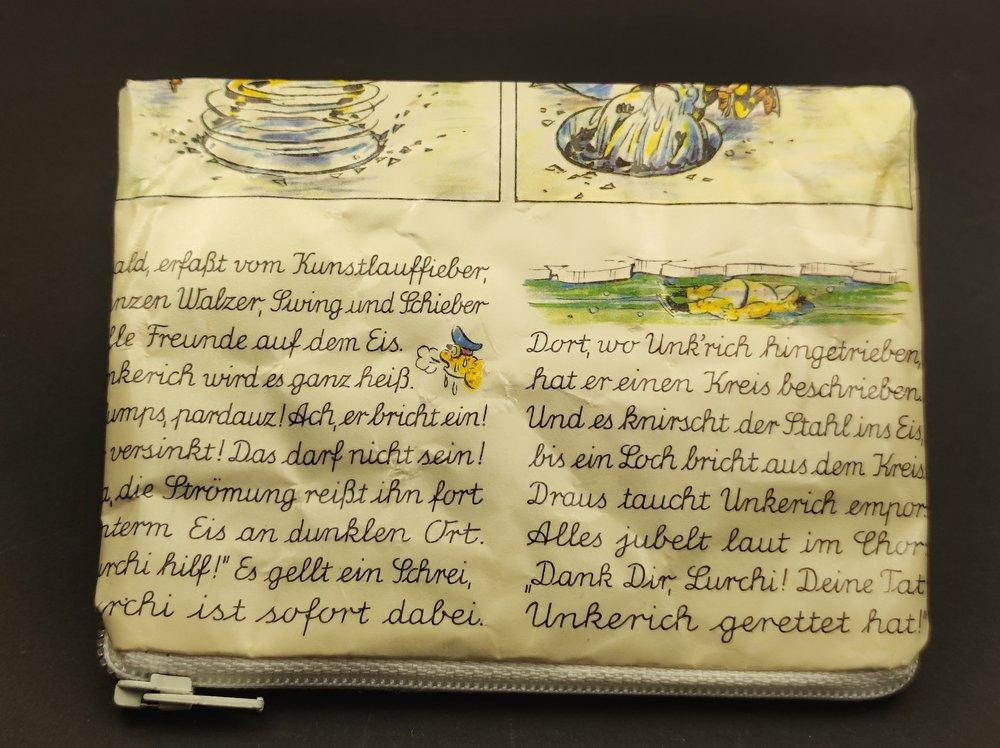 ald, erfaßt vom Kunstlauffieber,
nzen Walzer, Swing und Schieber
lle Freunde auf dem Eis.
nkerich wird es ganz heiß.
umps, pardauz! Ach, er bricht ein!
versinkt! Das darf nicht sein!
a, die Strömung reißt ihn fort
nterm Eis an dunklen Ort.
urchi hilf!" Es gellt ein Schrei,
urchi ist sofort dabei.
Dort, wo Unk'rich hingetrieben,
hat er einen Kreis beschrieben.
Und es knirscht der Stahl ins Eis,
bis ein Loch bricht aus dem Kreis
Draus taucht Unkerich empor.
Alles jubelt laut im Chor:
„Dank Dir, Lurchi! Deine Tat
Unkerich gerettet hat!"